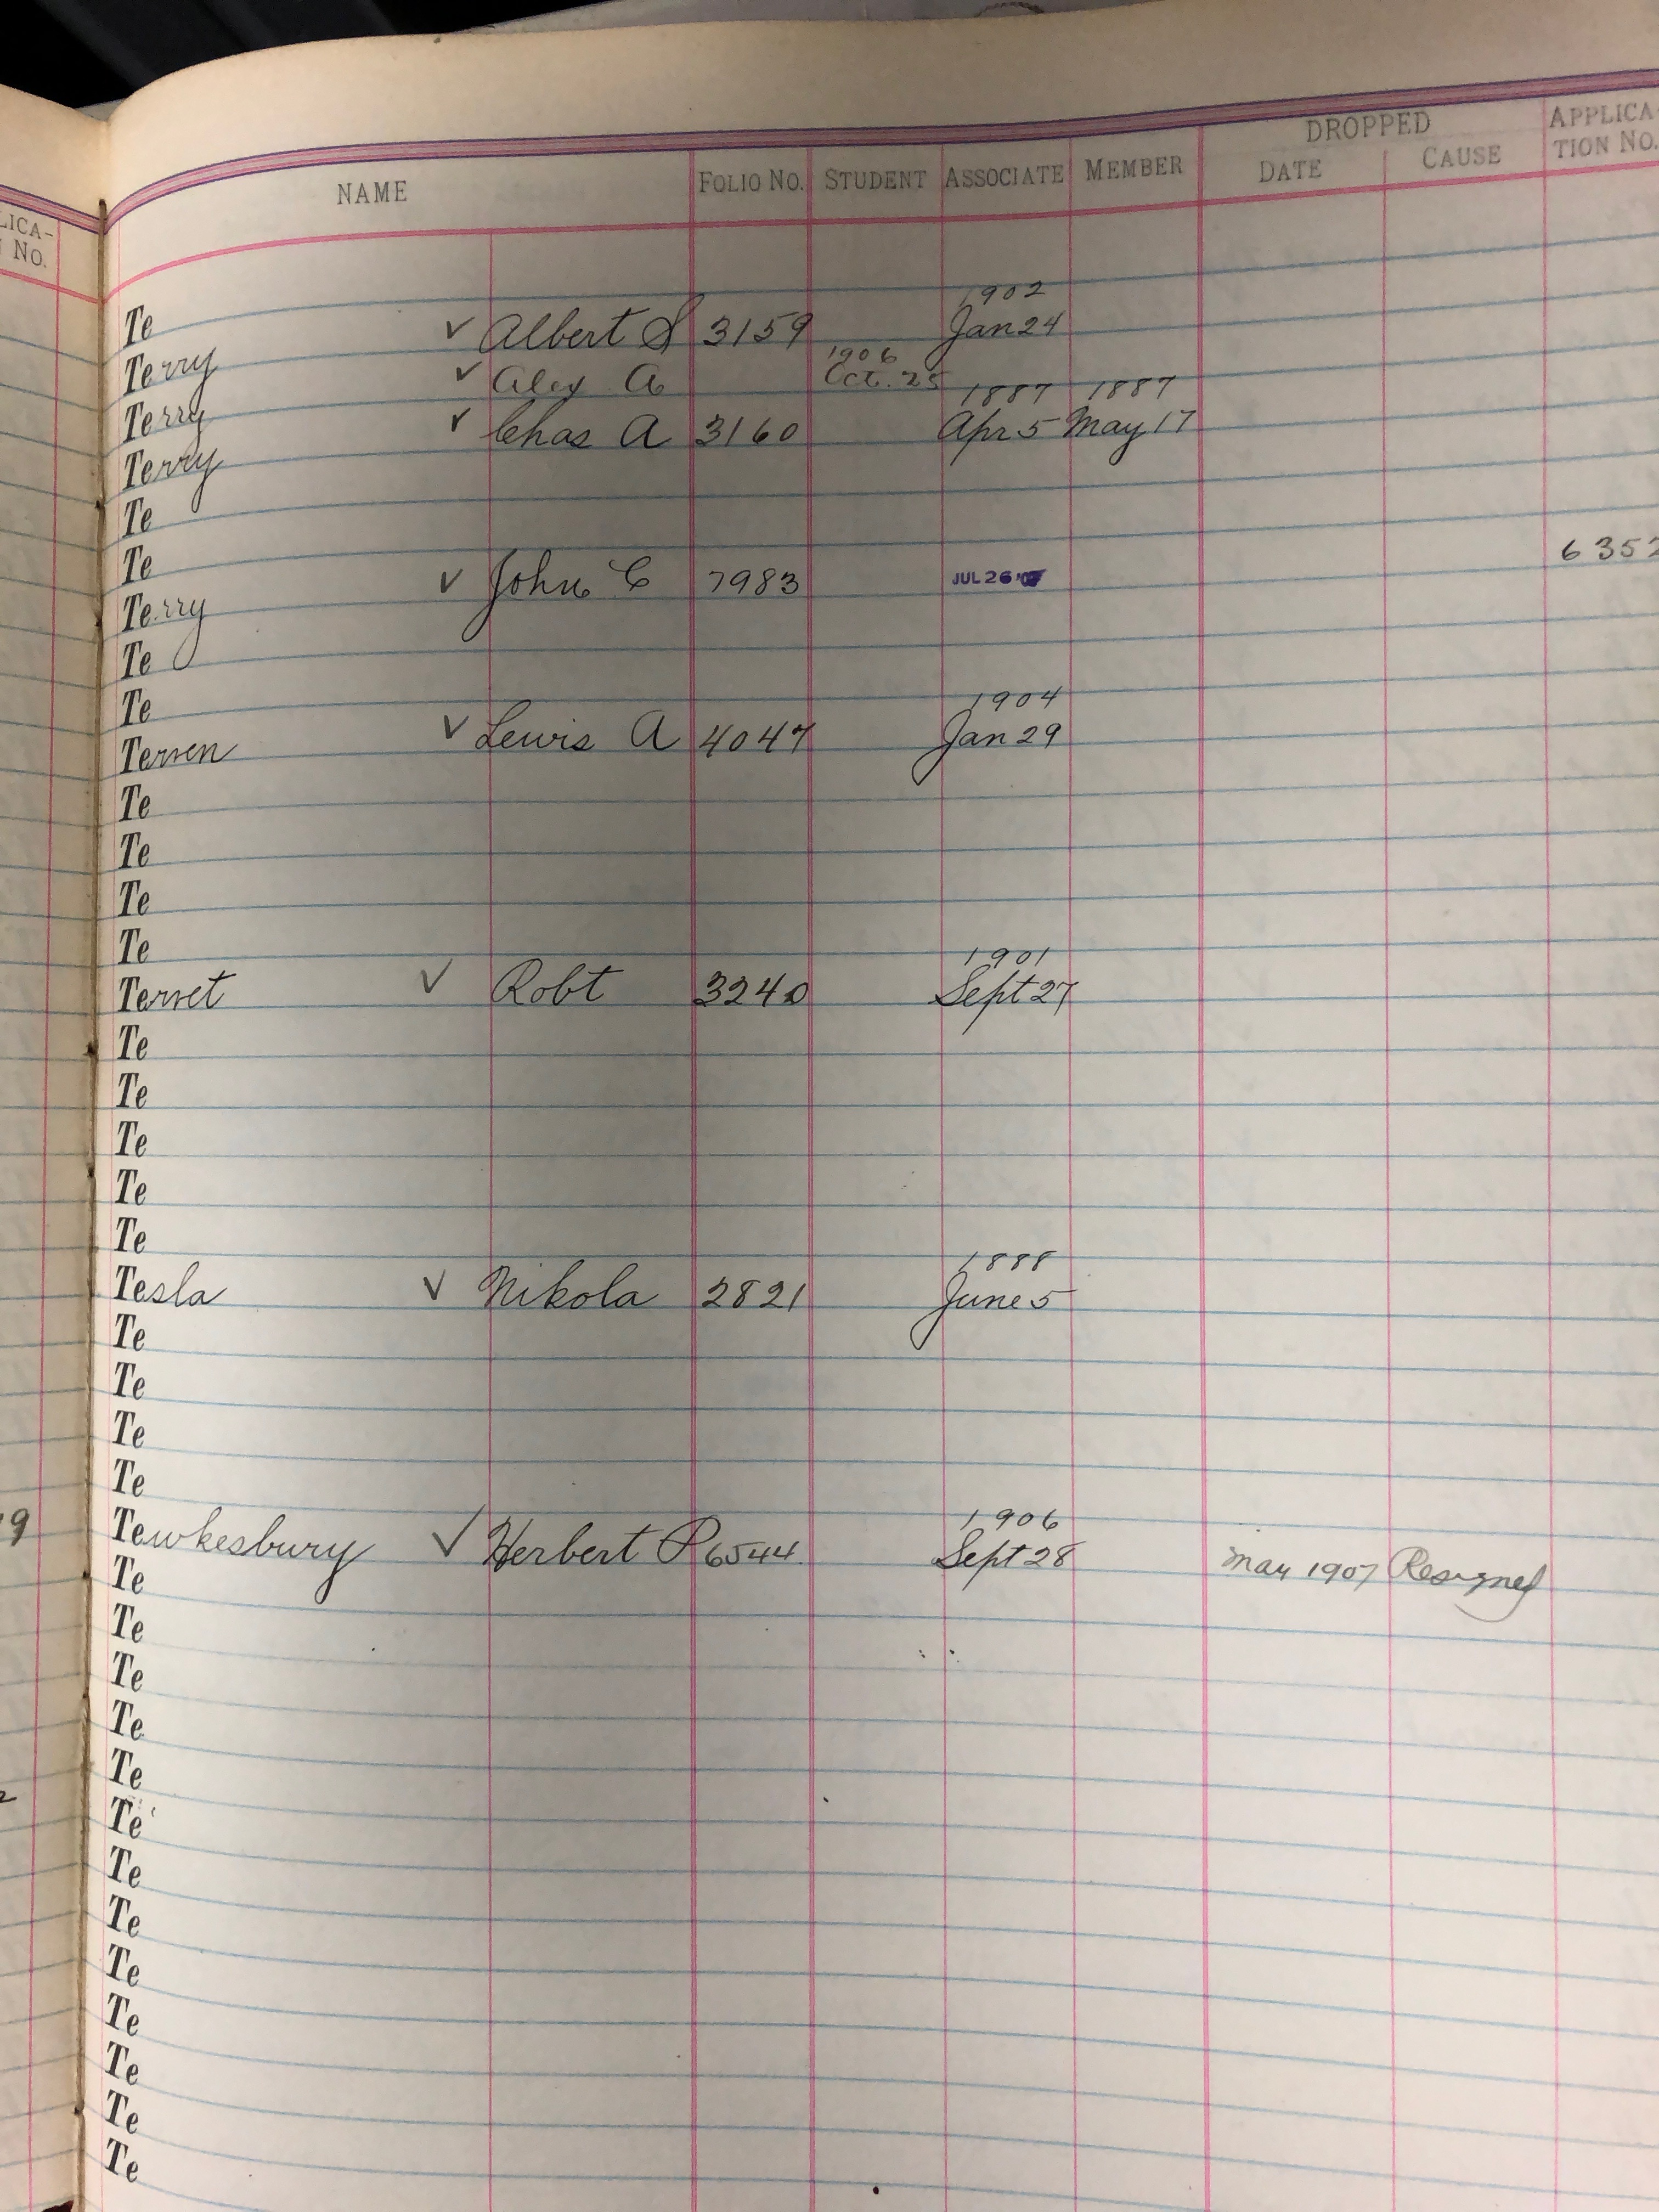 DROPPED
NAME FOLIO No. STUDENT ASSOCIATE MEMBER DATE CAUSE APPLICA-
TION No.
LICA-
No.
Te
1902
Terry ✓ Albert S 3159 Jan 24
1906
Terry ✓ Alex A Oct. 25
1887 1887
Terry ✓ Chas A 3160 Apr 5 May 17
Te
Te
Terry ✓ John C 7983 JUL 26 6352
Te
Te
1904
Terven ✓ Lewis A 4047 Jan 29
Te
Te
Te
Te
1901
Tervet ✓ Robt 3240 Sept 27
Te
Te
Te
Te
Te
1888
Tesla ✓ Nikola 2821 June 5
Te
Te
Te
Te
1906
9 Tewkesbury ✓ Herbert P 6544 Sept 28 May 1907 Resigned
Te
Te
Te
Te
Te
Te
Te
Te
Te
Te
Te
Te
Te